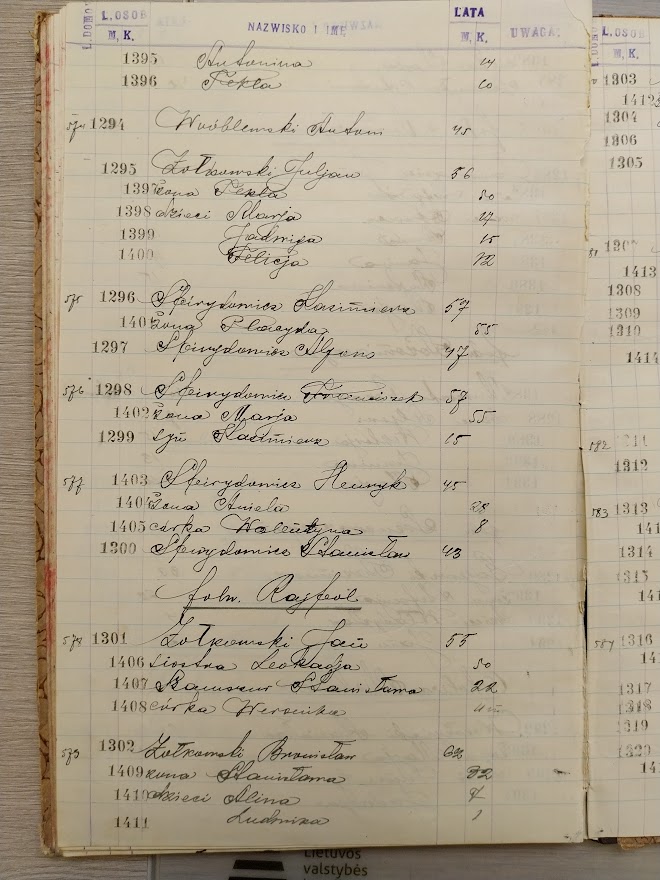 L. DOMÓW L. OSOB NAZWISKO I IMĘ LATA UWAGA.
M. K. M. K.
1395 Antonina 14
1396 Tekla 10
574 1294 Wróblewski Antoni 45
1295 Żołkowski Juljan 56
1397 żona Tekla 50
1398 dzieci Marja 17
1399 Jadwiga 15
1400 Felicja 12
575 1296 Spirydowicz Kazimierz 57
1401 żona Placyda 55
1297 Spirydowicz Alfons 47
576 1298 Spirydowicz Franciszek 57
1402 żona Marja 55
1299 syn Kazimierz 15
577 1403 Spirydowicz Henryk 45
1404 żona Aniela 28
1405 córka Walentyna 8
1300 Spirydowicz Stanisław 43
folw. Rajpol
578 1301 Żołkowski Jan 55
1406 siostra Leokadja 50
1407 Stanisława 22
1408 córka Weronika
579 1302 Żołkowski Bronisław
1409 żona Stanisława 32
1410 dzieci Alina 7
1411 Ludwika 1
L. OSOB
M. K.
1303
1412
1304
1306
1305
1413
1308
1309
1310
1414
582
1312
583 1313
141
1314
1315
141
584 1316
14
1317
1318
1319
1320
14
Lietuvos
valstybės